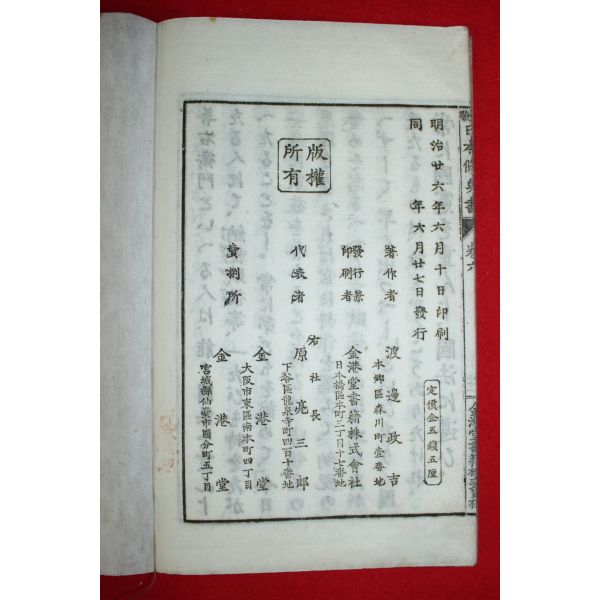 日本修身書
卷六
明治廿六年六月十日印刷
同年六月廿七日發行
定價金五錢五厘
版權所有
著作者
渡邊政吉
本鄉區森川町壹番地
發行兼印刷者
金港堂書籍株式會社
日本橋區本町三丁目十七番地
代表者
右社長
原亮三郎
下谷區龍泉寺町四百十番地
賣捌所
金港堂
大阪市東區南本町四丁目
金港堂
宮城縣仙臺市國分町五丁目
金港堂書籍株式會社